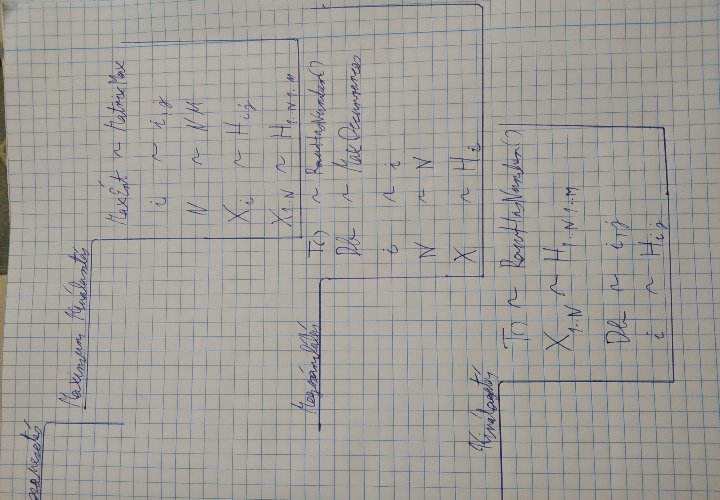 Maximum Kiválasztás
MaxÉrt ~ MatrixMax
i ~ i,j
N ~ NM
Xi ~ Hi,j
X1..N ~ H1..N1..M
Megszámlálás
T() ~ RowHasNumber()
Db ~ MaxOccurrences
i ~ i
N ~ N
X ~ Hi
Kiválogatás
T() ~ RowHasNumber()
X1..N ~ H1..N1..M
Db ~ i,j
i ~ Hi,j